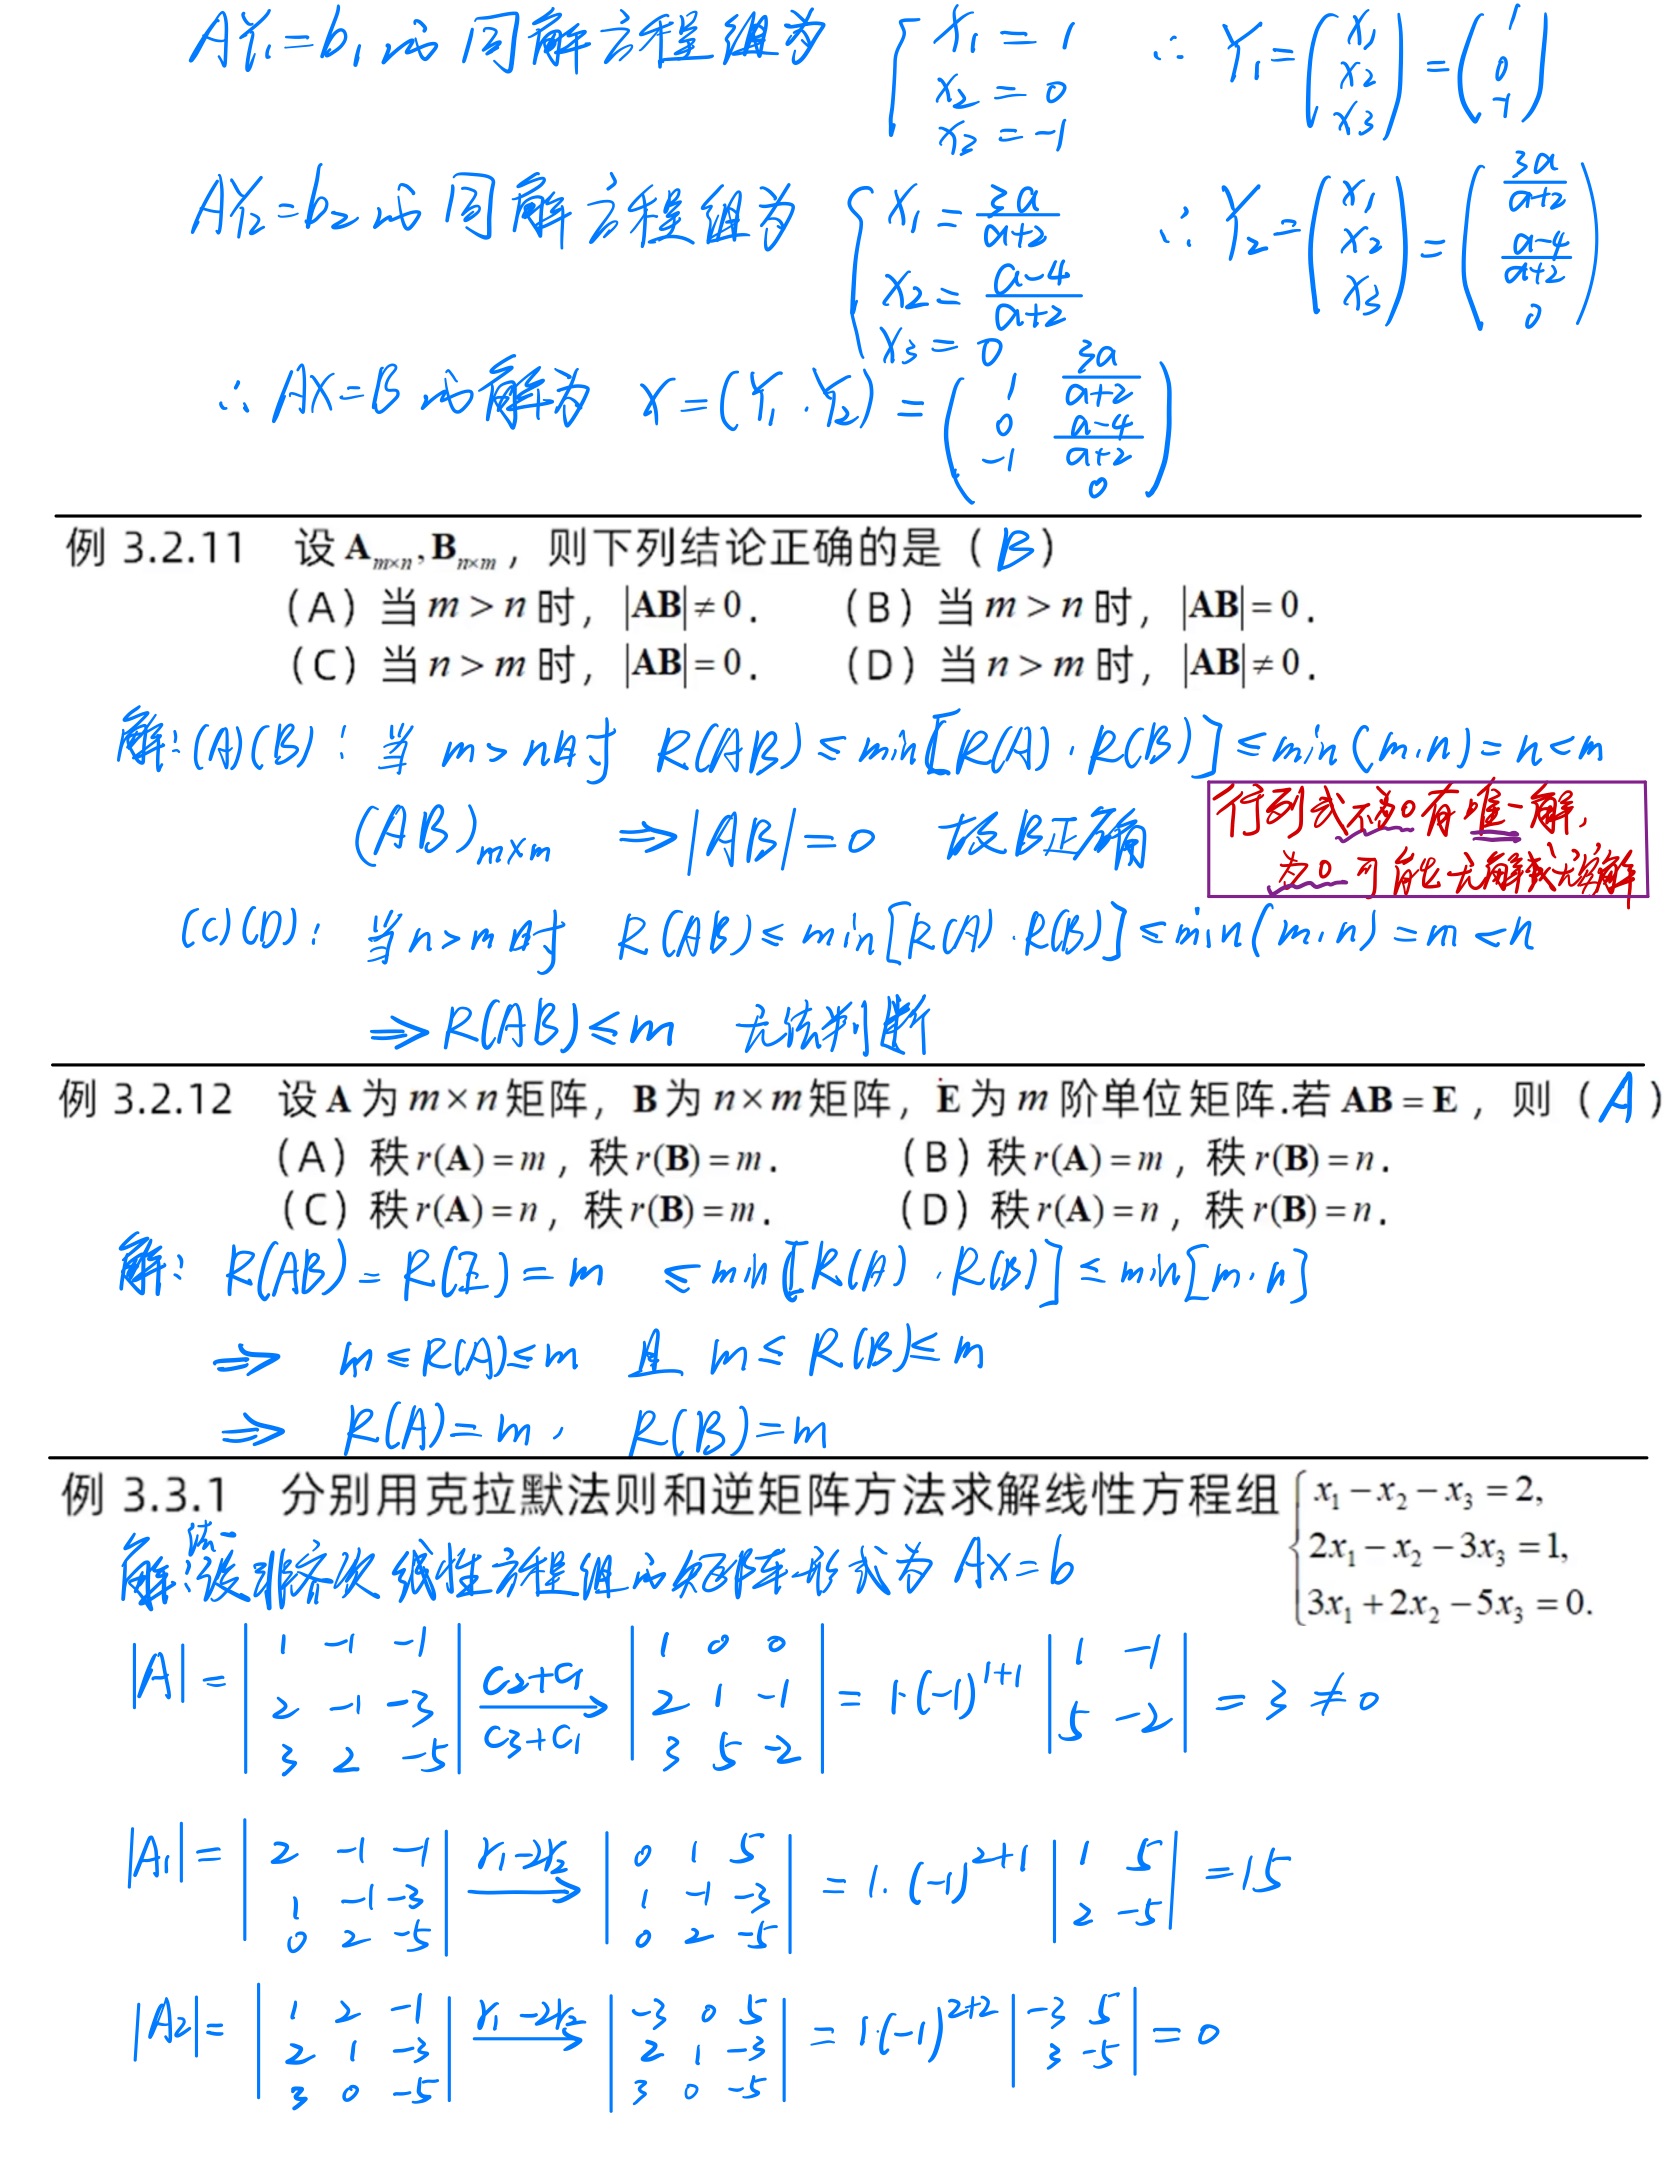 AY₁=b₁的同解方程组为 { x₁=1 x₂=0 x₃=-1 ∴ Y₁=(x₁ x₂ x₃)=(1 0 -1)
AY₂=b₂的同解方程组为 { x₁=3a/(a+2) x₂=(a-4)/(a+2) x₃=0 ∴ Y₂=(x₁ x₂ x₃)=(3a/(a+2) (a-4)/(a+2) 0)
∴ AX=B的解为 X=(Y₁,Y₂)=(1 3a/(a+2) 0 (a-4)/(a+2) -1 0)
例 3.2.11 设 A_{m×n}, B_{n×m}，则下列结论正确的是（B）
（A）当 m > n 时，|AB| ≠ 0. （B）当 m > n 时，|AB| = 0.
（C）当 n > m 时，|AB| = 0. （D）当 n > m 时，|AB| ≠ 0.
解:(A)(B): 当 m>n时 R(AB)≤min[R(A),R(B)]≤min(m,n)=n<m
(AB)_{m×m} ⇒|AB|=0 故B正确
行列式不为0有唯一解,
为0可能无解或无穷解
(C)(D): 当n>m时 R(AB)≤min[R(A),R(B)]≤min(m,n)=m<n
⇒R(AB)≤m 无法判断
例 3.2.12 设 A 为 m×n 矩阵，B 为 n×m 矩阵，E 为 m 阶单位矩阵.若 AB = E，则（A）
（A）秩 r(A) = m，秩 r(B) = m. （B）秩 r(A) = m，秩 r(B) = n.
（C）秩 r(A) = n，秩 r(B) = m. （D）秩 r(A) = n，秩 r(B) = n.
解: R(AB)=R(E)=m ≤min[R(A),R(B)]≤min[m,n]
⇒ m≤R(A)≤m 且 m≤R(B)≤m
⇒ R(A)=m, R(B)=m
例 3.3.1 分别用克拉默法则和逆矩阵方法求解线性方程组 { x₁−x₂−x₃=2, 2x₁−x₂−3x₃=1, 3x₁+2x₂−5x₃=0.
解:法一 设非齐次线性方程组的矩阵形式为 Ax=b
|A|= |1 -1 -1; 2 -1 -3; 3 2 -5| c₂+c₁ c₃+c₁ → |1 0 0; 2 1 -1; 3 5 -2| = 1·(-1)^{1+1} |1 -1; 5 -2| = 3 ≠0
|A₁|= |2 -1 -1; 1 -1 -3; 0 2 -5| r₁-2r₂ → |0 1 5; 1 -1 -3; 0 2 -5| = 1·(-1)^{2+1} |1 5; 2 -5| =15
|A₂|= |1 2 -1; 2 1 -3; 3 0 -5| r₁-2r₂ → |-3 0 5; 2 1 -3; 3 0 -5| = 1·(-1)^{2+2} |-3 5; 3 -5| =0